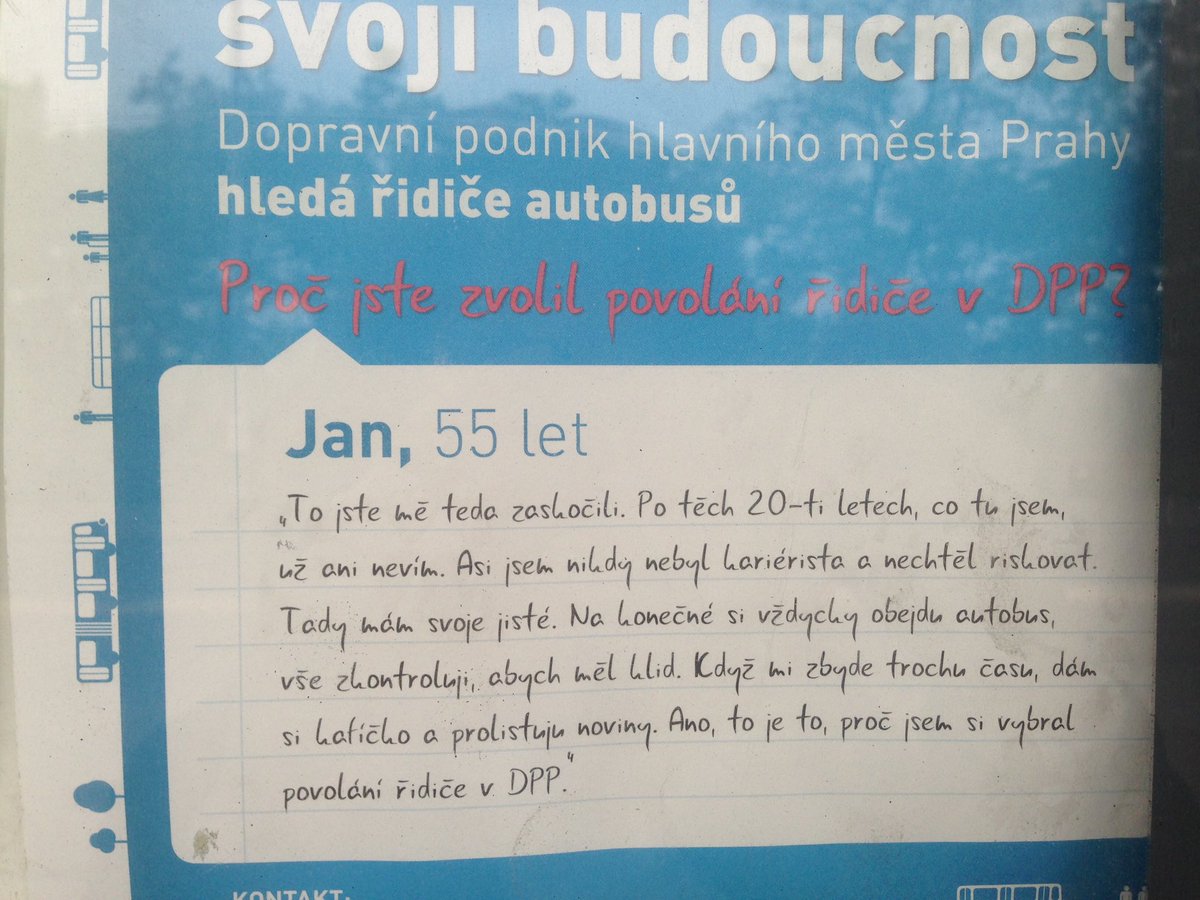 svoji budoucnost
Dopravní podnik hlavního města Prahy
hledá řidiče autobusů
Proč jste zvolil povolání řidiče v DPP?
Jan, 55 let
„To jste mě teda zaskočili. Po těch 20-ti letech, co tu jsem,
už ani nevím. Asi jsem nikdy nebyl kariérista a nechtěl riskovat.
Tady mám svoje jisté. Na konečné si vždycky obejdu autobus,
vše zkontroluji, abych měl klid. Když mi zbyde trochu času, dám
si kafíčko a prolistuju noviny. Ano, to je to, proč jsem si vybral
povolání řidiče v DPP.“
KONTAKT: